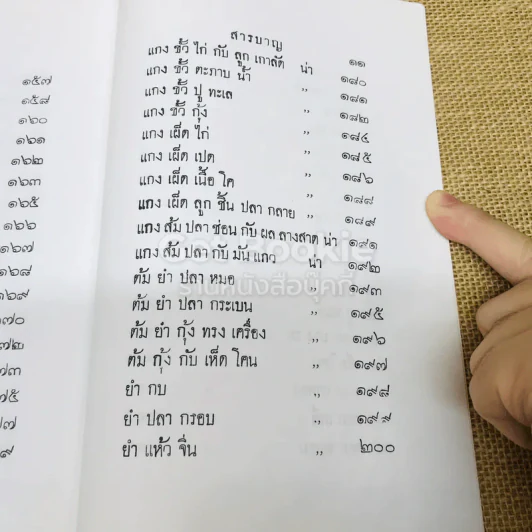 สารบาญ
๑๑
แกง ขั้ว ไก่ กับ ลูก เกาลัด น่า ๑๘๐
แกง ขั้ว ตะภาบ น้ำ ” ๑๘๑
แกง ขั้ว ปู ทะเล ” ๑๘๒
แกง ขั้ว กุ้ง ” ๑๘๔
แกง เผ็ด ไก่ ” ๑๘๕
แกง เผ็ด เปด ” ๑๘๖
แกง เผ็ด เนื้อ โค ” ๑๘๘
แกง เผ็ด ลูก ชิ้น ปลา กลาย ” ๑๘๙
แกง ส้ม ปลา ช่อน กับ ผล ลางสาด น่า ๑๙๑
แกง ส้ม ปลา กับ มัน แกว น่า ๑๙๒
ต้ม ยำ ปลา หมอ ” ๑๙๓
ต้ม ยำ ปลา กระเบน ” ๑๙๕
ต้ม ยำ กุ้ง ทรง เครื่อง ” ๑๙๖
ต้ม กุ้ง กับ เห็ด โคน ” ๑๙๗
ยำ กบ ” ๑๙๘
ยำ ปลา กรอบ ” ๑๙๙
ยำ แห้ว จีน ” ๒๐๐
๑๕๗
๑๕๘
๑๖๐
๑๖๑
๑๖๒
๑๖๓
๑๖๕
๑๖๖
๑๖๗
๑๖๘
๑๖๙
ร้านหนังสือบุ๊คกี้